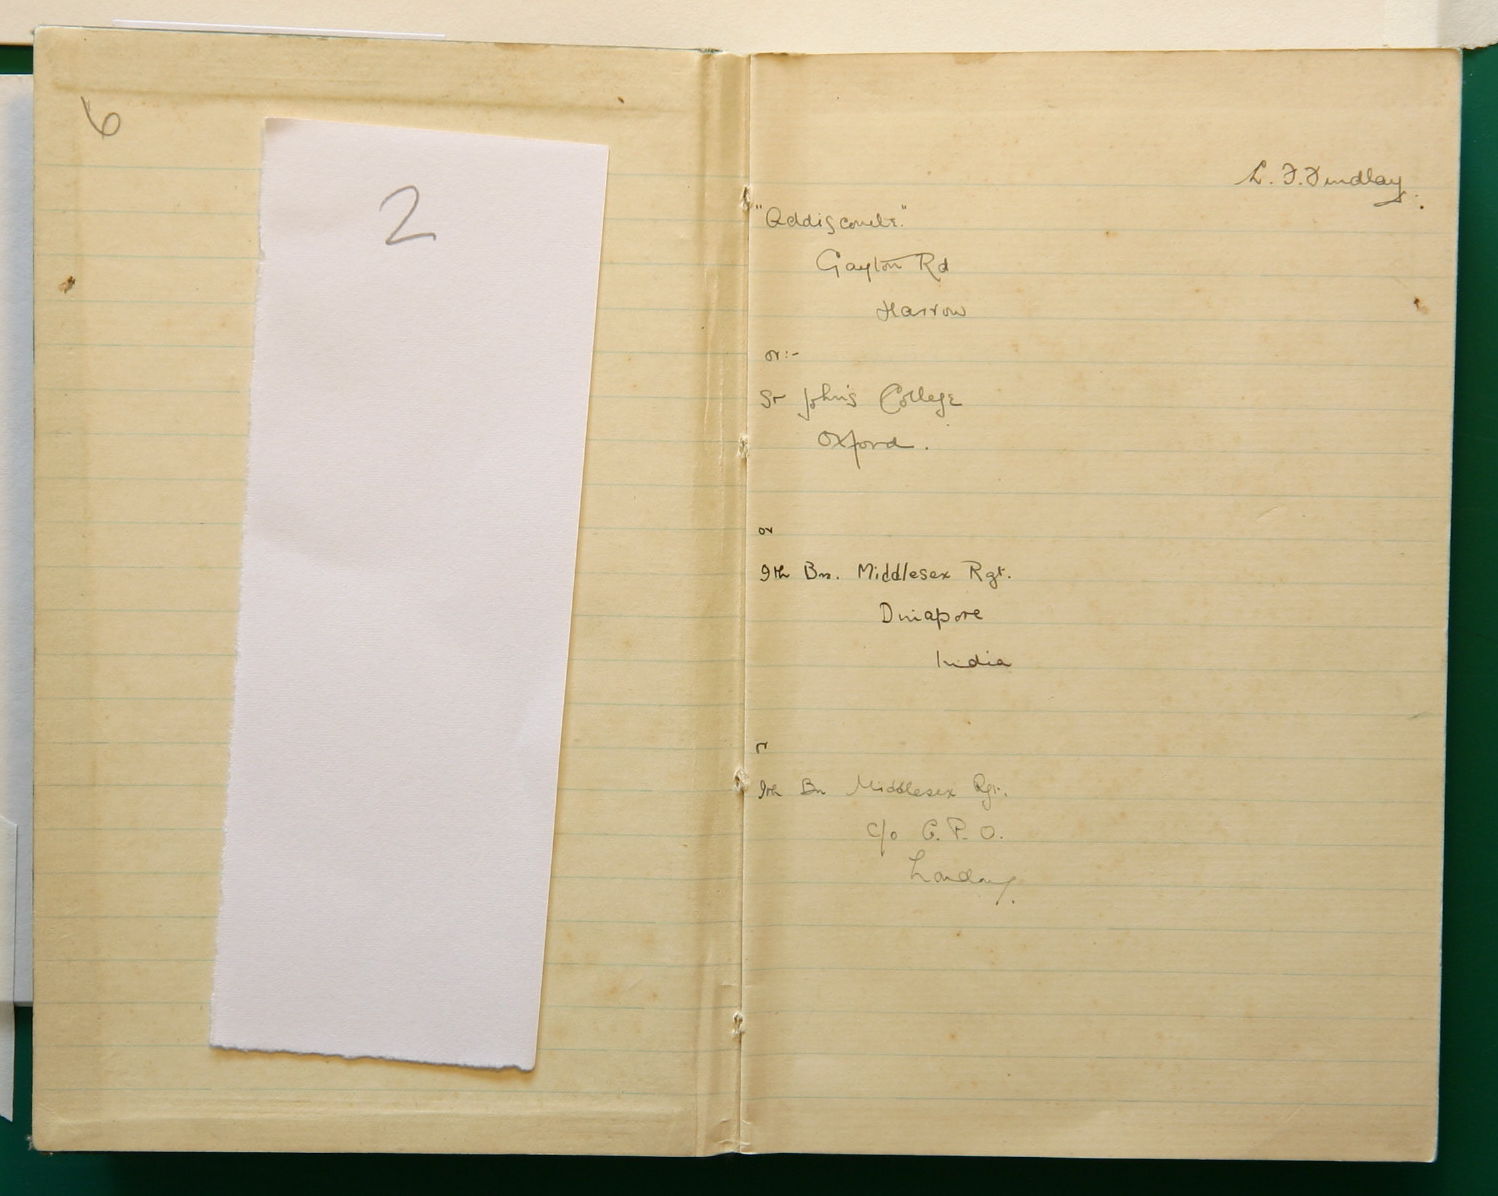 6
2
L. F. Findlay.
"Addiscombe".
Gayton Rd
Harrow
or:-
St John's College
Oxford.
or
9th Bn. Middlesex Rgt.
Dinapore
India
or
9th Bn Middlesex Rgt.
c/o G. P. O.
London.